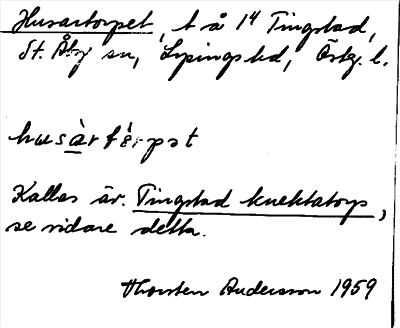 Husartorpet, t å 1⁴ Tingstad,
St. Åby sn, Lysings hd, Östg. l.
husàrtèrpət
Kallas äv. Tingstad knektatorp,
se vidare detta.
Thorsten Andersson 1959